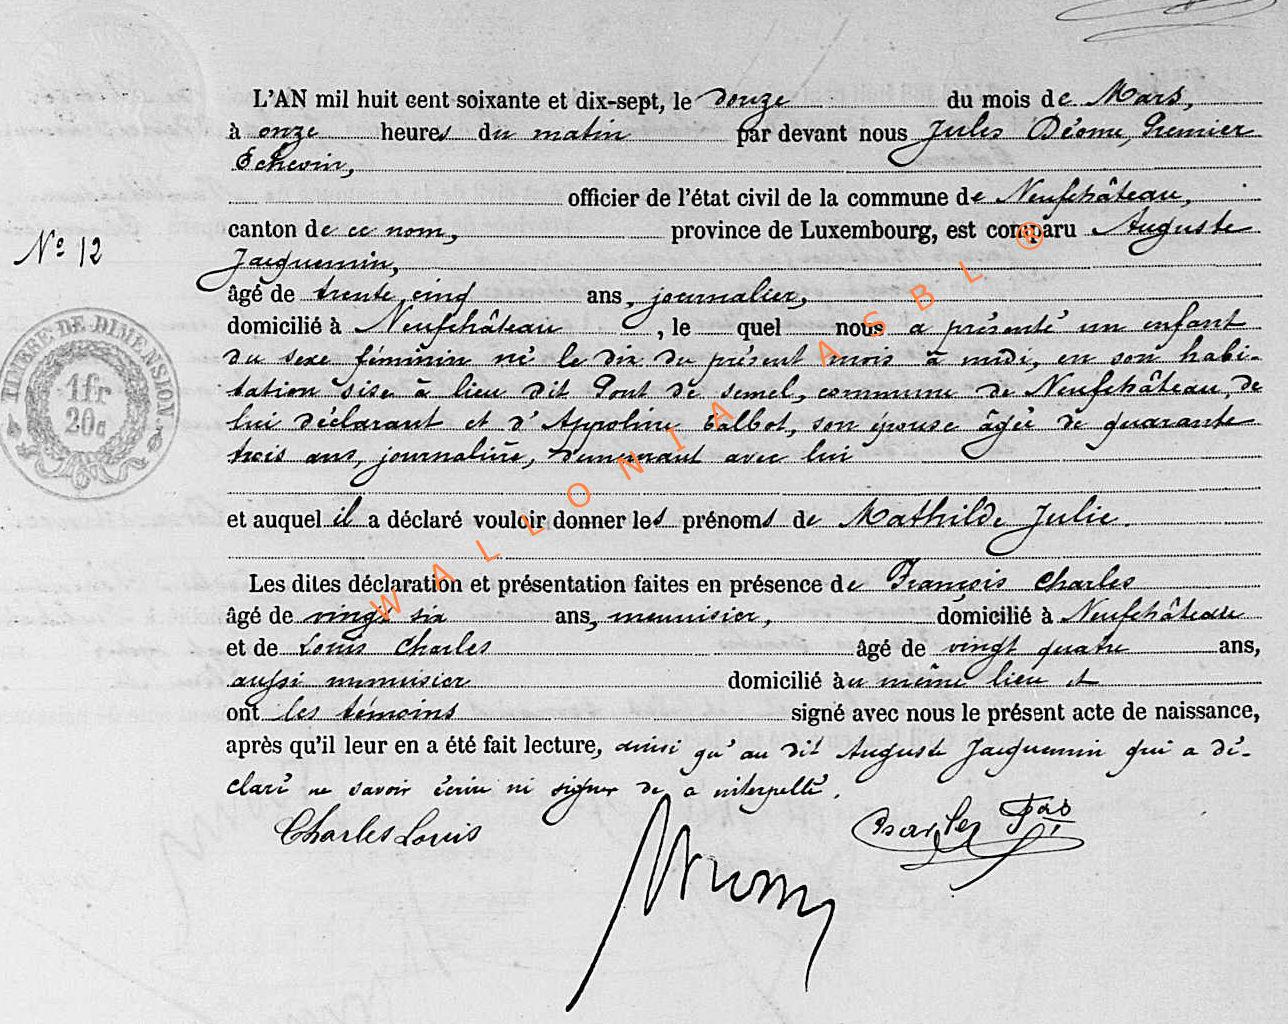 L'AN mil huit cent soixante et dix-sept, le douze du mois de Mars,
à onze heures du matin par devant nous Jules Déome, Premier
Echevin,
officier de l'état civil de la commune de Neufchâteau,
canton de ce nom, province de Luxembourg, est comparu Auguste
Jacquemin,
N° 12
âgé de trente cinq ans, journalier,
domicilié à Neufchâteau, le quel nous a présenté un enfant
du sexe féminin né le dix du présent mois à midi, en son habi-
tation sise à lieu dit Pont de semel, commune de Neufchâteau, de
lui déclarant et d'Appoline Talbot, son épouse âgée de quarante
trois ans, journalière, demeurant avec lui
et auquel il a déclaré vouloir donner les prénoms de Mathilde Julie.
Les dites déclaration et présentation faites en présence de François Charles
âgé de vingt six ans, menuisier, domicilié à Neufchâteau
et de Louis Charles âgé de vingt quatre ans,
aussi menuisier domicilié au même lieu et
ont les témoins signé avec nous le présent acte de naissance,
après qu'il leur en a été fait lecture, ainsi qu'au dit Auguste Jacquemin qui a dé-
claré ne savoir écrire ni signer de ce interpellé.
Charles Louis
Charles Fçois
TIMBRE DE DIMENSION
1fr
20c
WALLONIA ASBL ®